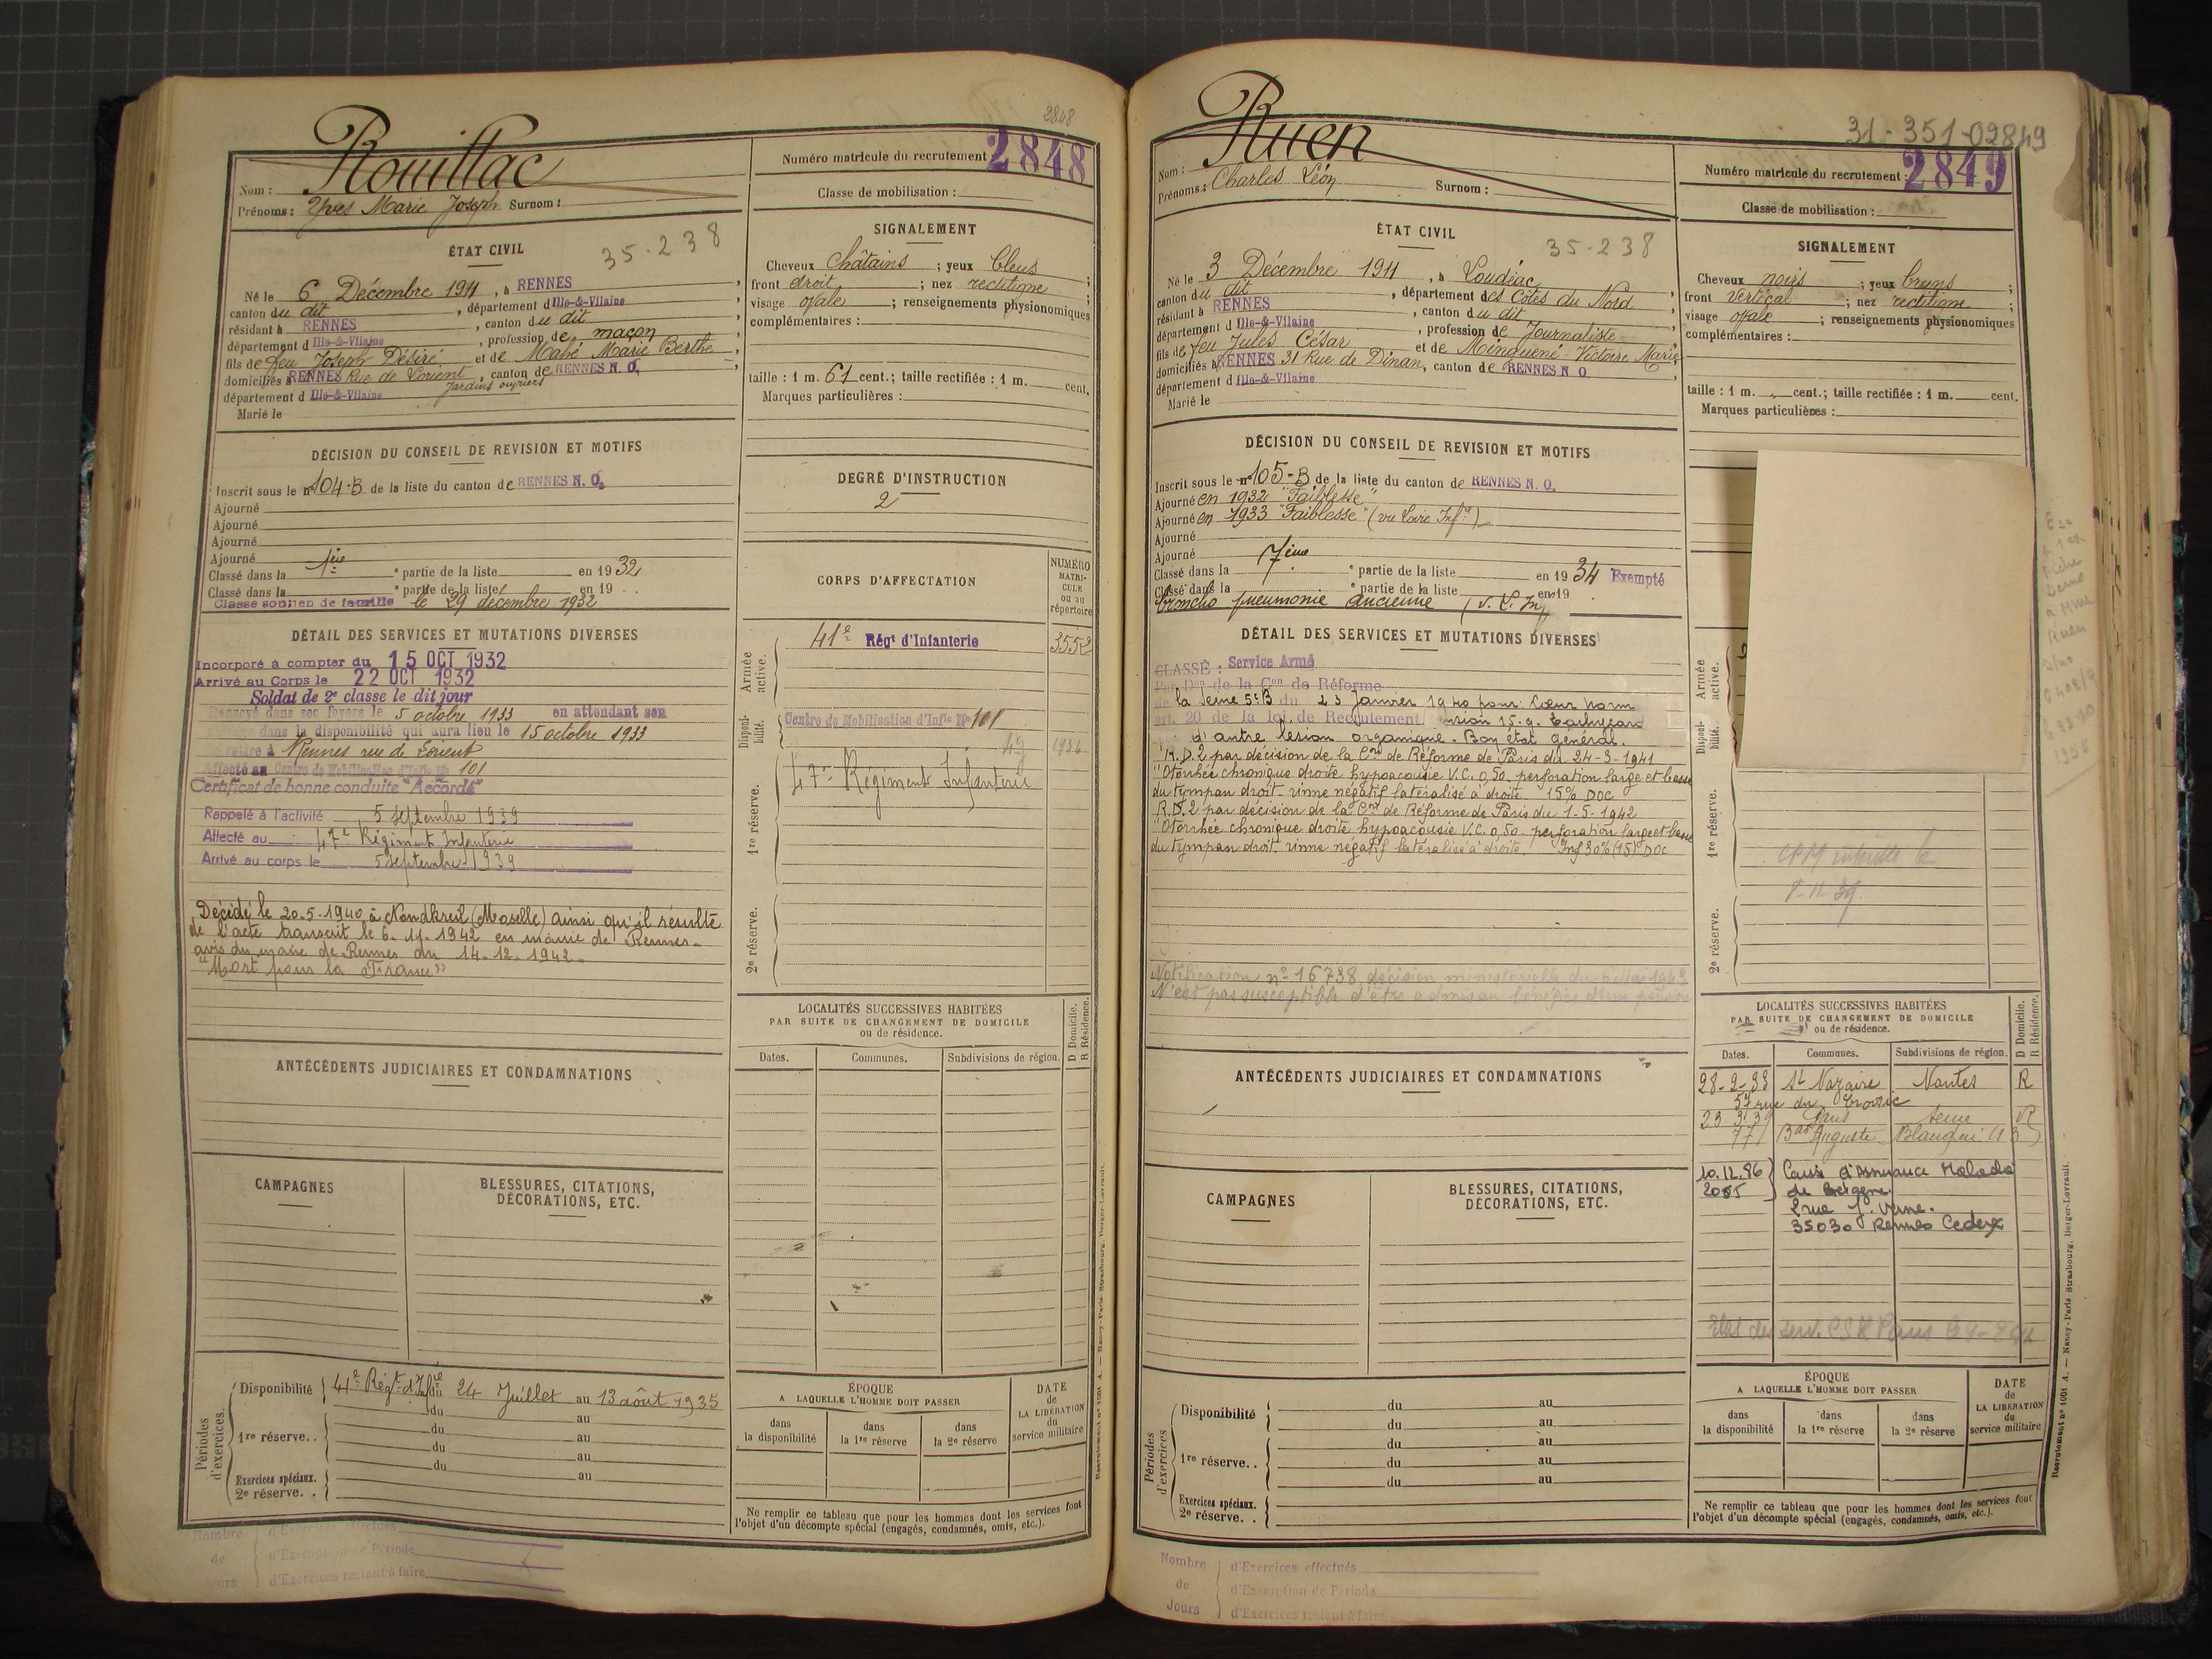 2848
Rouillac
Nom :
Prénoms : Yves Marie Joseph Surnom :
Numéro matricule du recrutement : 2848
Classe de mobilisation :
ÉTAT CIVIL
35.238
Né le 6 Décembre 1911, à RENNES,
canton du dit, département d Ille-&-Vilaine
résidant à RENNES, canton du dit,
département d Ille-&-Vilaine, profession de maçon
fils de feu Joseph Désiré et de Mahé Marie Berthe,
domiciliés à RENNES Rue de Lorient, canton de RENNES N. O.,
Jardins ouvriers
département d Ille-&-Vilaine
Marié le
SIGNALEMENT
Cheveux Châtains ; yeux bleus ;
front droit ; nez rectiligne ;
visage ovale ; renseignements physionomiques
complémentaires :
taille : 1 m. 61 cent.; taille rectifiée : 1 m. cent.
Marques particulières :
DÉCISION DU CONSEIL DE REVISION ET MOTIFS
Inscrit sous le n° 104-B de la liste du canton de RENNES N. O.
Ajourné
Ajourné
Ajourné
Ajourné
Classé dans la 1ère partie de la liste en 1932
Classé dans la partie de la liste en 19
Classé soutien de famille le 29 décembre 1932
DEGRÉ D'INSTRUCTION
2
DÉTAIL DES SERVICES ET MUTATIONS DIVERSES
Incorporé à compter du 15 OCT 1932
Arrivé au Corps le 22 OCT 1932
Soldat de 2e classe le dit jour
Renvoyé dans ses foyers le 5 octobre 1933 en attendant son
passage dans la disponibilité qui aura lieu le 15 octobre 1933
Se retire à Rennes rue de Lorient
Affecté au Centre de Mobilisation d'Infie No 101
Certificat de bonne conduite "Accordé"
Rappelé à l'activité 5 septembre 1939
Affecté au 47e Régiment Infanterie
Arrivé au corps le 5 septembre 1939
Décédé le 20.5.1940 à (Moselle) ainsi qu'il résulte
de l'acte transcrit le 6.11.1942 en mairie de Rennes.
avis du maire de Rennes du 14-12-1942.
"Mort pour la France"
CORPS D'AFFECTATION
NUMÉRO MATRICULE ou au répertoire
Armée active.
41e Régt d'Infanterie 3552
Disponibilité.
Centre de Mobilisation d'Infie No 101
1re réserve.
47e Régiment Infanterie
2e réserve.
LOCALITÉS SUCCESSIVES HABITÉES
PAR SUITE DE CHANGEMENT DE DOMICILE
ou de résidence.
D Domicile.
R Résidence.
Dates. Communes. Subdivisions de région.
ANTÉCÉDENTS JUDICIAIRES ET CONDAMNATIONS
CAMPAGNES
BLESSURES, CITATIONS,
DÉCORATIONS, ETC.
Périodes d'exercices.
Disponibilité 41e Régt d'Infie du 24 Juillet au 13 août 1935
du au
1re réserve. . du au
du au
du au
Exercices spéciaux.
2e réserve. .
ÉPOQUE
A LAQUELLE L'HOMME DOIT PASSER
dans la disponibilité
dans la 1re réserve
dans la 2e réserve
DATE de LA LIBÉRATION du service militaire
Ne remplir ce tableau que pour les hommes dont les services font
l'objet d'un décompte spécial (engagés, condamnés, omis, etc.).
Nombre de Jours
d'Exercices effectués
d'Exemption de Période
d'Exercices restant à faire
Recrutement n° 1001 A. — Nancy-Paris-Strasbourg, Berger-Levrault.
31-351-02849
Ruen
Nom :
Prénoms : Charles Léon Surnom :
Numéro matricule du recrutement : 2849
Classe de mobilisation :
ÉTAT CIVIL
35.238
Né le 3 Décembre 1911, à Loudéac,
canton du dit, département des Côtes du Nord,
résidant à RENNES, canton du dit,
département d Ille-&-Vilaine, profession de Journaliste
fils de feu Jules César et de Minguené Victoire Marie,
domiciliés à RENNES 31 Rue de Dinan, canton de RENNES N. O.,
département d Ille-&-Vilaine
Marié le
SIGNALEMENT
Cheveux noirs ; yeux bruns ;
front vertical ; nez rectiligne ;
visage ovale ; renseignements physionomiques
complémentaires :
taille : 1 m. cent.; taille rectifiée : 1 m. cent.
Marques particulières :
DÉCISION DU CONSEIL DE REVISION ET MOTIFS
Inscrit sous le n° 105-B de la liste du canton de RENNES N. O.
Ajourné en 1932 "Faiblesse"
Ajourné en 1933 "Faiblesse" (vu Loire Infre)
Ajourné
Ajourné
Classé dans la 7ème partie de la liste en 1934 Exempté
Classé dans la partie de la liste en 19
broncho pneumonie ancienne
DÉTAIL DES SERVICES ET MUTATIONS DIVERSES
CLASSÉ : Service Armé
Par Don de la Con de Réforme
de la Seine 5e B du 23 Janvier 1940 pour: Coeur norm
art. 20 de la loi de Recrutement
d'autre lésion organique. Bon état général.
R.D.2 par décision de la Con de Réforme de Paris du 24-3-1941
"Otorrhée chronique droite hypoacousie V.C. 0,50 perforation large et basse
du tympan droit. rinne négatif latéralisé à droite. 15% DOC
R.D.2 par décision de la Con de Réforme de Paris du 1-5-1942
"Otorrhée chronique droite hypoacousie V.C. 0,50 perforation large et basse
du tympan droit. rinne négatif latéralisé à droite. Inf 30% (15) DOC
Notification n° 16738, décision ministérielle du
N'est pas susceptible d'être admis au bénéfice d'une pension
Armée active.
Disponibilité.
1re réserve.
2e réserve.
LOCALITÉS SUCCESSIVES HABITÉES
PAR SUITE DE CHANGEMENT DE DOMICILE
ou de résidence.
D Domicile.
R Résidence.
Dates. Communes. Subdivisions de région.
28-2-33 St Nazaire Nantes R
57 rue du Croisic
Paris Seine R
77 Bard Auguste Blanqui
10.12.86 Caisse d'Assurance Maladie
2055 de Bretagne.
2 rue J. Verne.
35030 Rennes Cedex
ANTÉCÉDENTS JUDICIAIRES ET CONDAMNATIONS
CAMPAGNES
BLESSURES, CITATIONS,
DÉCORATIONS, ETC.
Périodes d'exercices
Disponibilité du au
du au
1re réserve. . du au
du au
du au
Exercices spéciaux.
2e réserve. .
ÉPOQUE
A LAQUELLE L'HOMME DOIT PASSER
dans la disponibilité
dans la 1re réserve
dans la 2e réserve
DATE de LA LIBÉRATION du service militaire
Ne remplir ce tableau que pour les hommes dont les services font
l'objet d'un décompte spécial (engagés, condamnés, omis, etc.).
Nombre de Jours
d'Exercices effectués
d'Exemption de Période
d'Exercices restant à faire
Recrutement n° 1001 A. — Nancy-Paris-Strasbourg, Berger-Levrault.